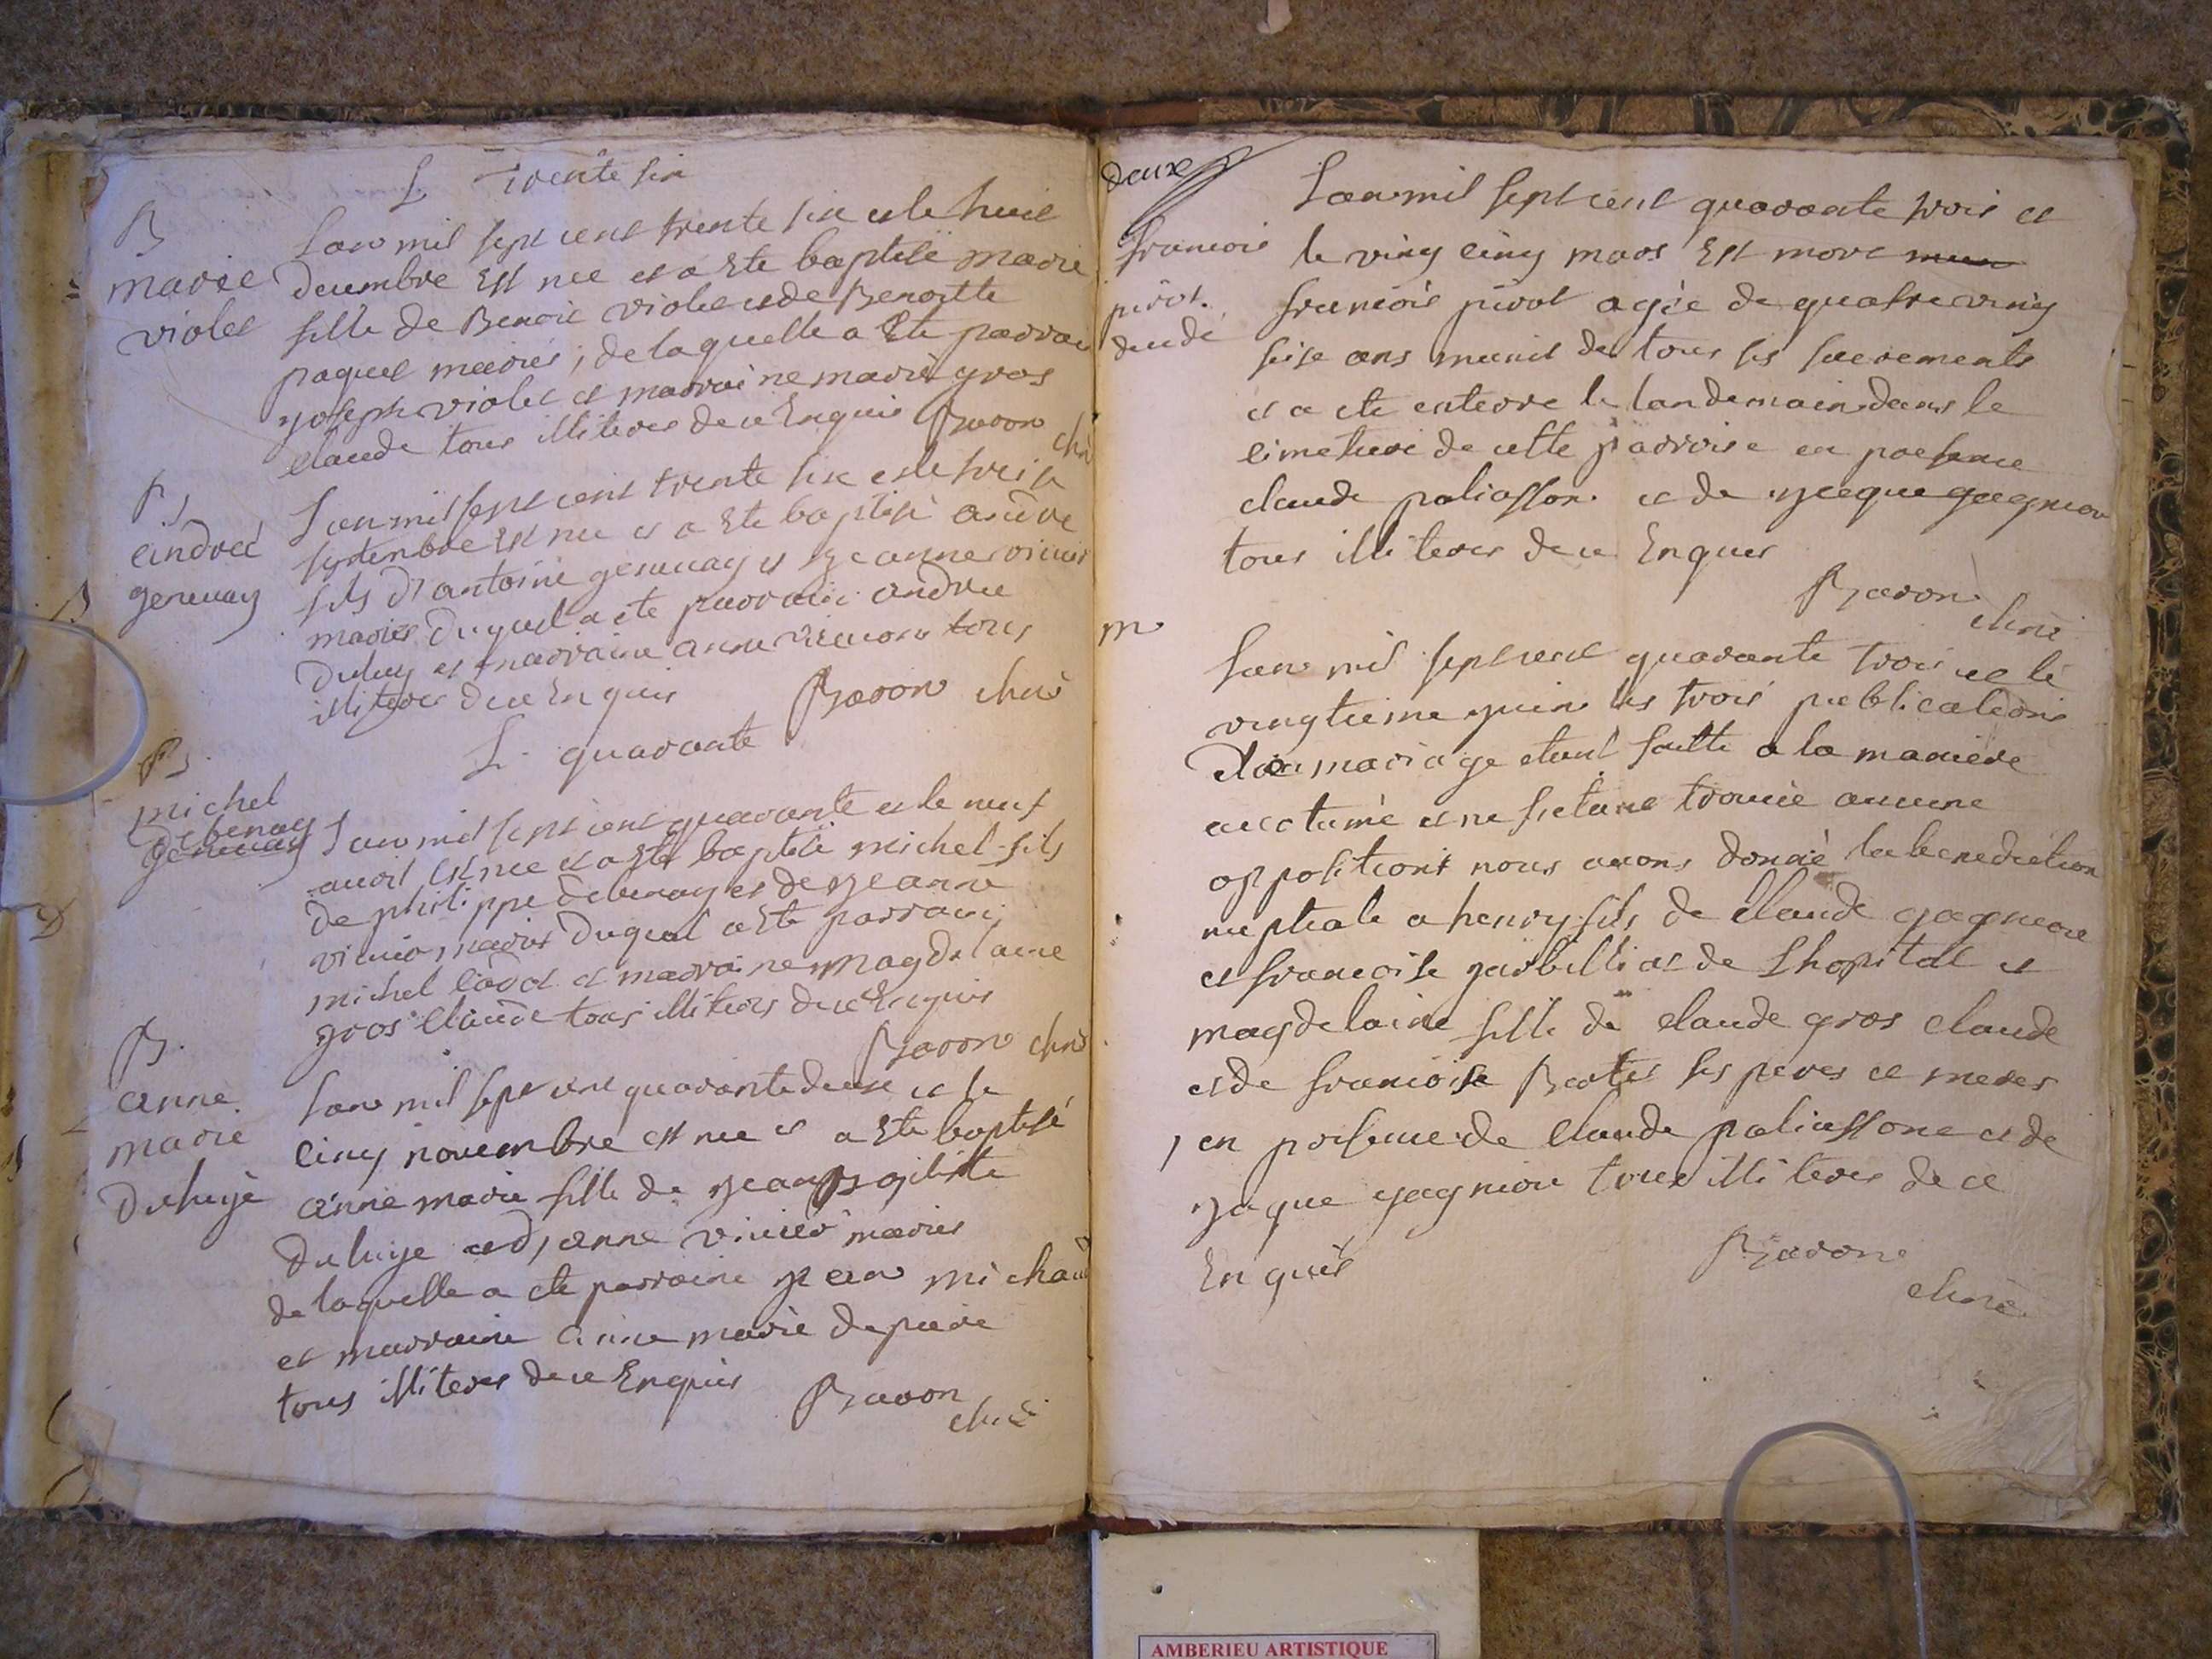 L trente six
B
marie
violet
Lan mil sept cent trente six et le huit
decembre Est nee et a Ete baptisé marie
fille de Benoit violet et de Benoitte
paquet mariés, de laquelle a Ete parrai
joseph violet et marraine marie gros
claude tous illiteres de ce Enquis Baron
curé
B
andreé
geneuay
Lan mil sept cent trente six et le treise
septembre Est nee et a Ete baptisé andre
fils d'antoine geneuay et jeanne
mariés duquel a ete parrain andre
et marraine anne tous
illiteres de ce Enquis Baron curé
L quarante
B
michel
debenay
geneuay
Lan mil sept cent quarante et le neuf
auril Est nee et a Ete baptisé michel fils
de philippe debenay et de jeanne
mariés duquel a Ete parrain
michel et marraine magdelaine
gros claude tous illiteres de ce Enquis
Baron curé
B
anne
marie
deluije
Lan mil sept cent quarante deux et le
cinq novembre est nee et a Ete baptisé
anne marie fille de jean
deluije et d'anne mariés
de laquelle a ete parraine jean michau
et marraine anne marie
tous illiteres de ce Enquis Baron
curé
deux
francois
pivot
Lan mil sept cent quarante trois et
le vinq cinq mars Est mort
francois pivot agée de quatre vinq
seise ans munit de tous ses sacrements
et a ete enterre le landemain dans le
cimetiere de cette parroise en presence
claude paliasson et de jacque gagnion
tous illiteres de ce Enques
Baron
curé
m
Lan mil sept cent quarante trois et le
vingtieme juin les trois publications
du mariage etant faitte a la maniere
accotumé et ne setant trouvée aucune
oppositions nous avons donné la benediction
nuptiale a henry fils de claude gagnion
et francoise de Lhopital et
magdelaine fille de claude gros claude
et de francoise ses peres et meres
en presence de claude paliassone et de
jaque gagnion tous illiteres de ce
Enqués
Baron
curé
AMBERIEU ARTISTIQUE